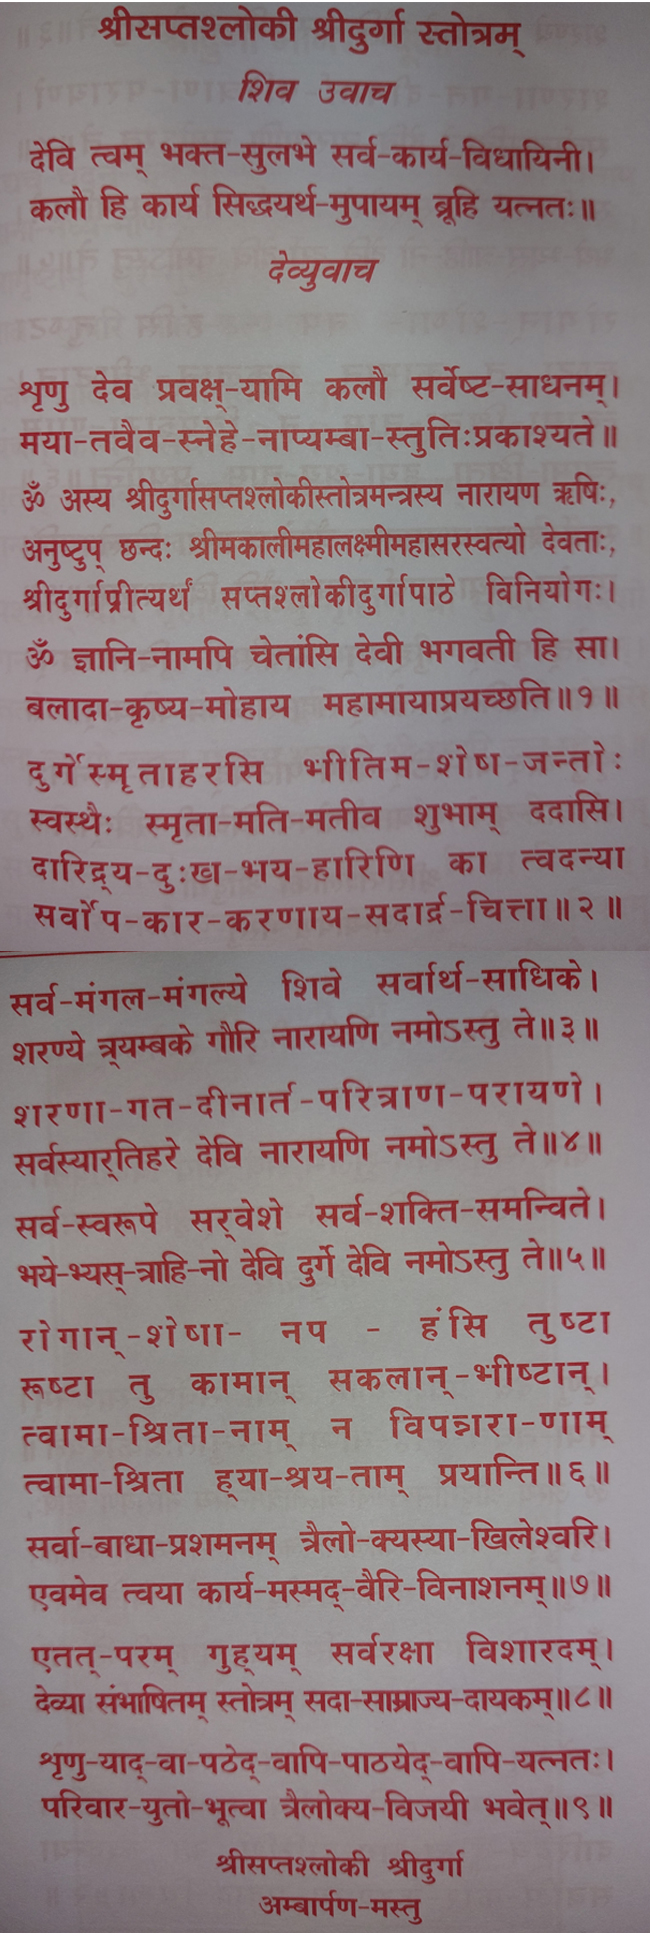 श्रीसप्तश्लोकी श्रीदुर्गा स्तोत्रम्
शिव उवाच
देवि त्वम् भक्त-सुलभे सर्व-कार्य-विधायिनी।
कलौ हि कार्य सिद्धयर्थ-मुपायम् ब्रूहि यत्नतः॥
देव्युवाच
शृणु देव प्रवक्ष्-यामि कलौ सर्वेष्ट-साधनम्।
मया-तवैव-स्नेहे-नाप्यम्बा-स्तुतिःप्रकाश्यते॥
ॐ अस्य श्रीदुर्गासप्तश्लोकीस्तोत्रमन्त्रस्य नारायण ऋषिः,
अनुष्टुप् छन्दः श्रीमकालीमहालक्ष्मीमहासरस्वत्यो देवताः,
श्रीदुर्गाप्रीत्यर्थं सप्तश्लोकीदुर्गापाठे विनियोगः।
ॐ ज्ञानि-नामपि चेतांसि देवी भगवती हि सा।
बलादा-कृष्य-मोहाय महामायाप्रयच्छति॥१॥
दुर्गेस्मृताहरसि भीतिम-शेष-जन्तोः
स्वस्थैः स्मृता-मति-मतीव शुभाम् ददासि।
दारिद्र्य-दुःख-भय-हारिणि का त्वदन्या
सर्वोप-कार-करणाय-सदार्द्र-चित्ता॥२॥
सर्व-मंगल-मंगल्ये शिवे सर्वार्थ-साधिके।
शरण्ये त्र्यम्बके गौरि नारायणि नमोऽस्तु ते॥३॥
शरणा-गत-दीनार्त-परित्राण-परायणे।
सर्वस्यार्तिहरे देवि नारायणि नमोऽस्तु ते॥४॥
सर्व-स्वरूपे सर्वेशे सर्व-शक्ति-समन्विते।
भये-भ्यस्-त्राहि-नो देवि दुर्गे देवि नमोऽस्तु ते॥५॥
रोगान्-शेषा- नप - हंसि तुष्टा
रूष्टा तु कामान् सकलान्-भीष्टान्।
त्वामा-श्रिता-नाम् न विपन्नारा-णाम्
त्वामा-श्रिता ह्या-श्रय-ताम् प्रयान्ति॥६॥
सर्वा-बाधा-प्रशमनम् त्रैलो-क्यस्या-खिलेश्वरि।
एवमेव त्वया कार्य-मस्मद्-वैरि-विनाशनम्॥७॥
एतत्-परम् गुह्यम् सर्वरक्षा विशारदम्।
देव्या संभाषितम् स्तोत्रम् सदा-साम्राज्य-दायकम्॥८॥
शृणु-याद्-वा-पठेद्-वापि-पाठयेद्-वापि-यत्नतः।
परिवार-युतो-भूत्वा त्रैलोक्य-विजयी भवेत्॥९॥
श्रीसप्तश्लोकी श्रीदुर्गा
अम्बार्पण-मस्तु